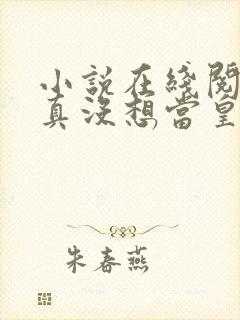 小說在綫閱
真沒想當皇
朱春燕